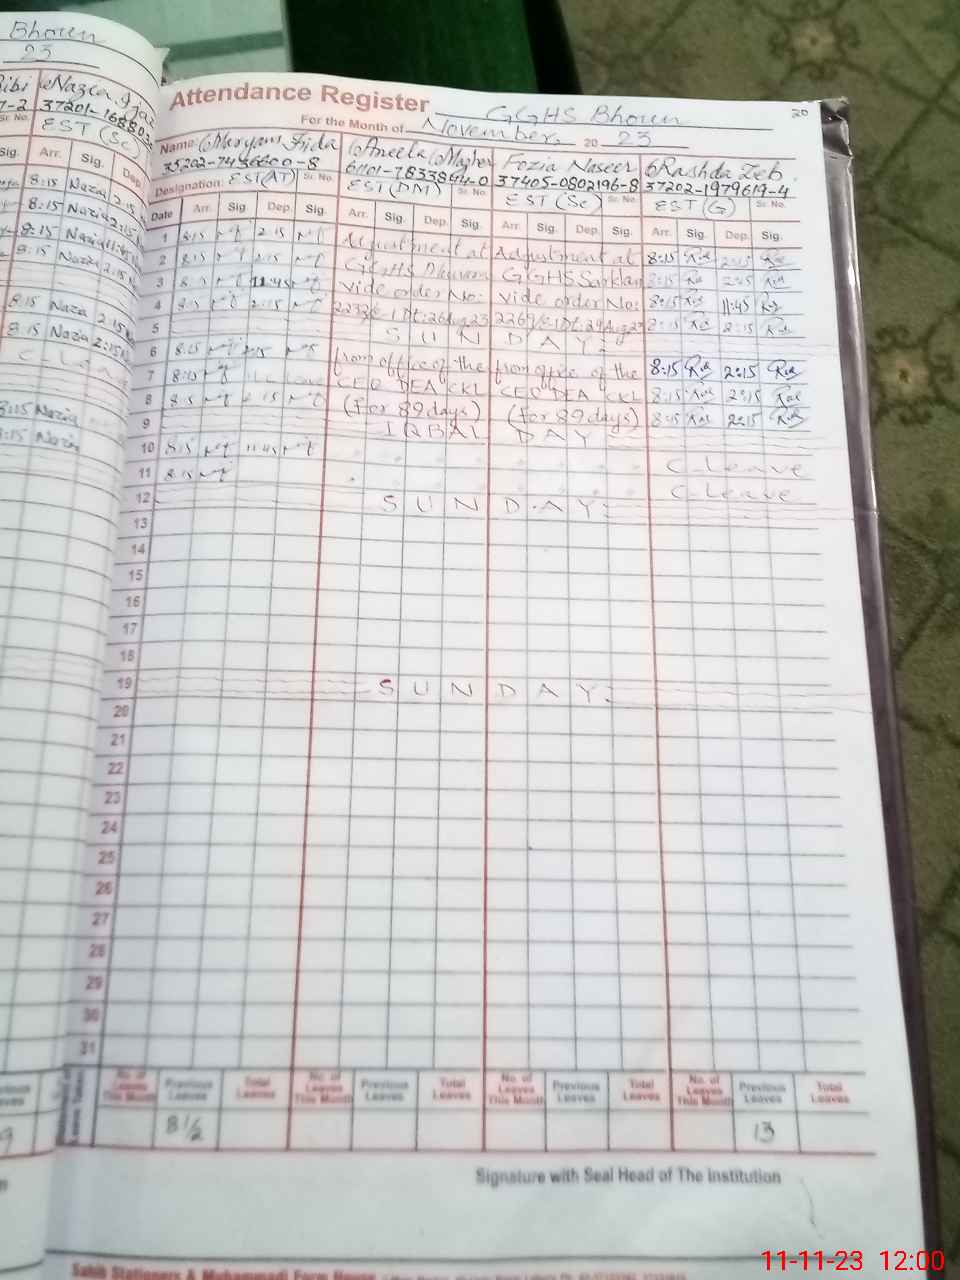 Bhoun
23
Nazia Ijaz
EST (Sc)
Arr. Sig. Dep.
8:15 Nazia 2:15
8:15 Nazia 2:15
8:15 Nazia 11:45
8:15 Nazia 2:15
8:15 Nazia 2:15
8:15 Nazia 2:15
C. Leave
8:15 Nazia
8:15 Nazia
Attendance Register GGHS Bhoun 20
For the Month of November. 20 23
Name: Maryam Fida Aneela Mazher Fozia Naseer Rashda Zeb
35202-7436600-8 61101-7833844-0 37405-0802196-8 37202-1979619-4
Designation: EST (AT) Sr. No. EST (DM) Sr. No. EST (Sc) Sr. No. EST (G) Sr. No.
Date Arr. Sig. Dep. Sig. Arr. Sig. Dep. Sig. Arr. Sig. Dep. Sig. Arr. Sig. Dep. Sig.
1 8:15 2:15 Adjustment at Adjustment at 8:15 2:15
2 8:15 2:15 GGHS Bhoun GGHS Sarklan 8:15 2:15
3 8:15 11:45 vide order No: vide order No: 8:15 11:45
4 8:15 2:15 Dt: 26 Aug 23 Dt: 29 Aug 23 8:15 2:15
5 S U N D A Y:
6 8:15 2:15 from office of the from office of the 8:15 2:15
7 8:15 CEO DEA CKL CEO DEA CKL 8:15 2:15
8 8:15 2:15 (for 89 days) (for 89 days) 8:15 2:15
9 I Q B A L D A Y
10 8:15 11:45 C. Leave
11 8:15 C. Leave
12 S U N D A Y:
13
14
15
16
17
18
19 S U N D A Y:
20
21
22
23
24
25
26
27
28
29
30
31
No. of Leaves This Month Previous Leaves Total Leaves No. of Leaves This Month Previous Leaves Total Leaves No. of Leaves This Month Previous Leaves Total Leaves No. of Leaves This Month Previous Leaves Total Leaves
8 1/2 13
Signature with Seal Head of The Institution
11-11-23 12:00